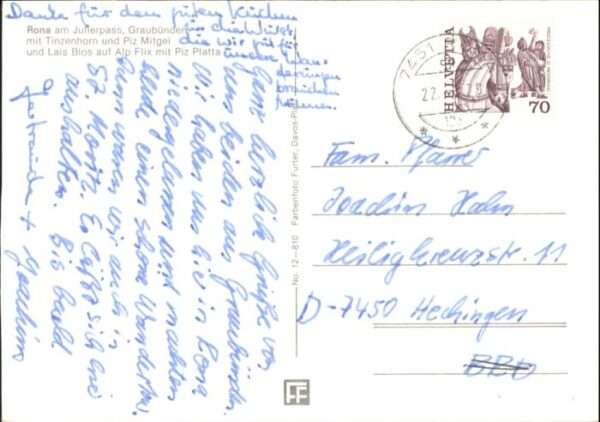 Danke für den guten Kuchen
die wir gut für
unsere Wan-
derungen
brauchen
können.
Rona am Julierpass, Graubünden
mit Tinzenhorn und Piz Mitgel
und Lais Blos auf Alp Flix mit Piz Platta
Ganz herzlich Grüße von
uns beiden aus Graubünden.
Wir haben uns hier in Rona
niedergelassen und machten
heute einen schönen Wandertag.
waren wir auch in
St. Moritz. Es läßt sich hier
aushalten. Bis bald
Gertraude + Joachim
No. 12-810 Farbenfoto Furter, Davos-Platz
FF
7451
22.
HELVETIA
70
Fam. Pfarrer
Joachim Hahn
Heiligkreuzstr. 11
D-7450 Hechingen
BRD